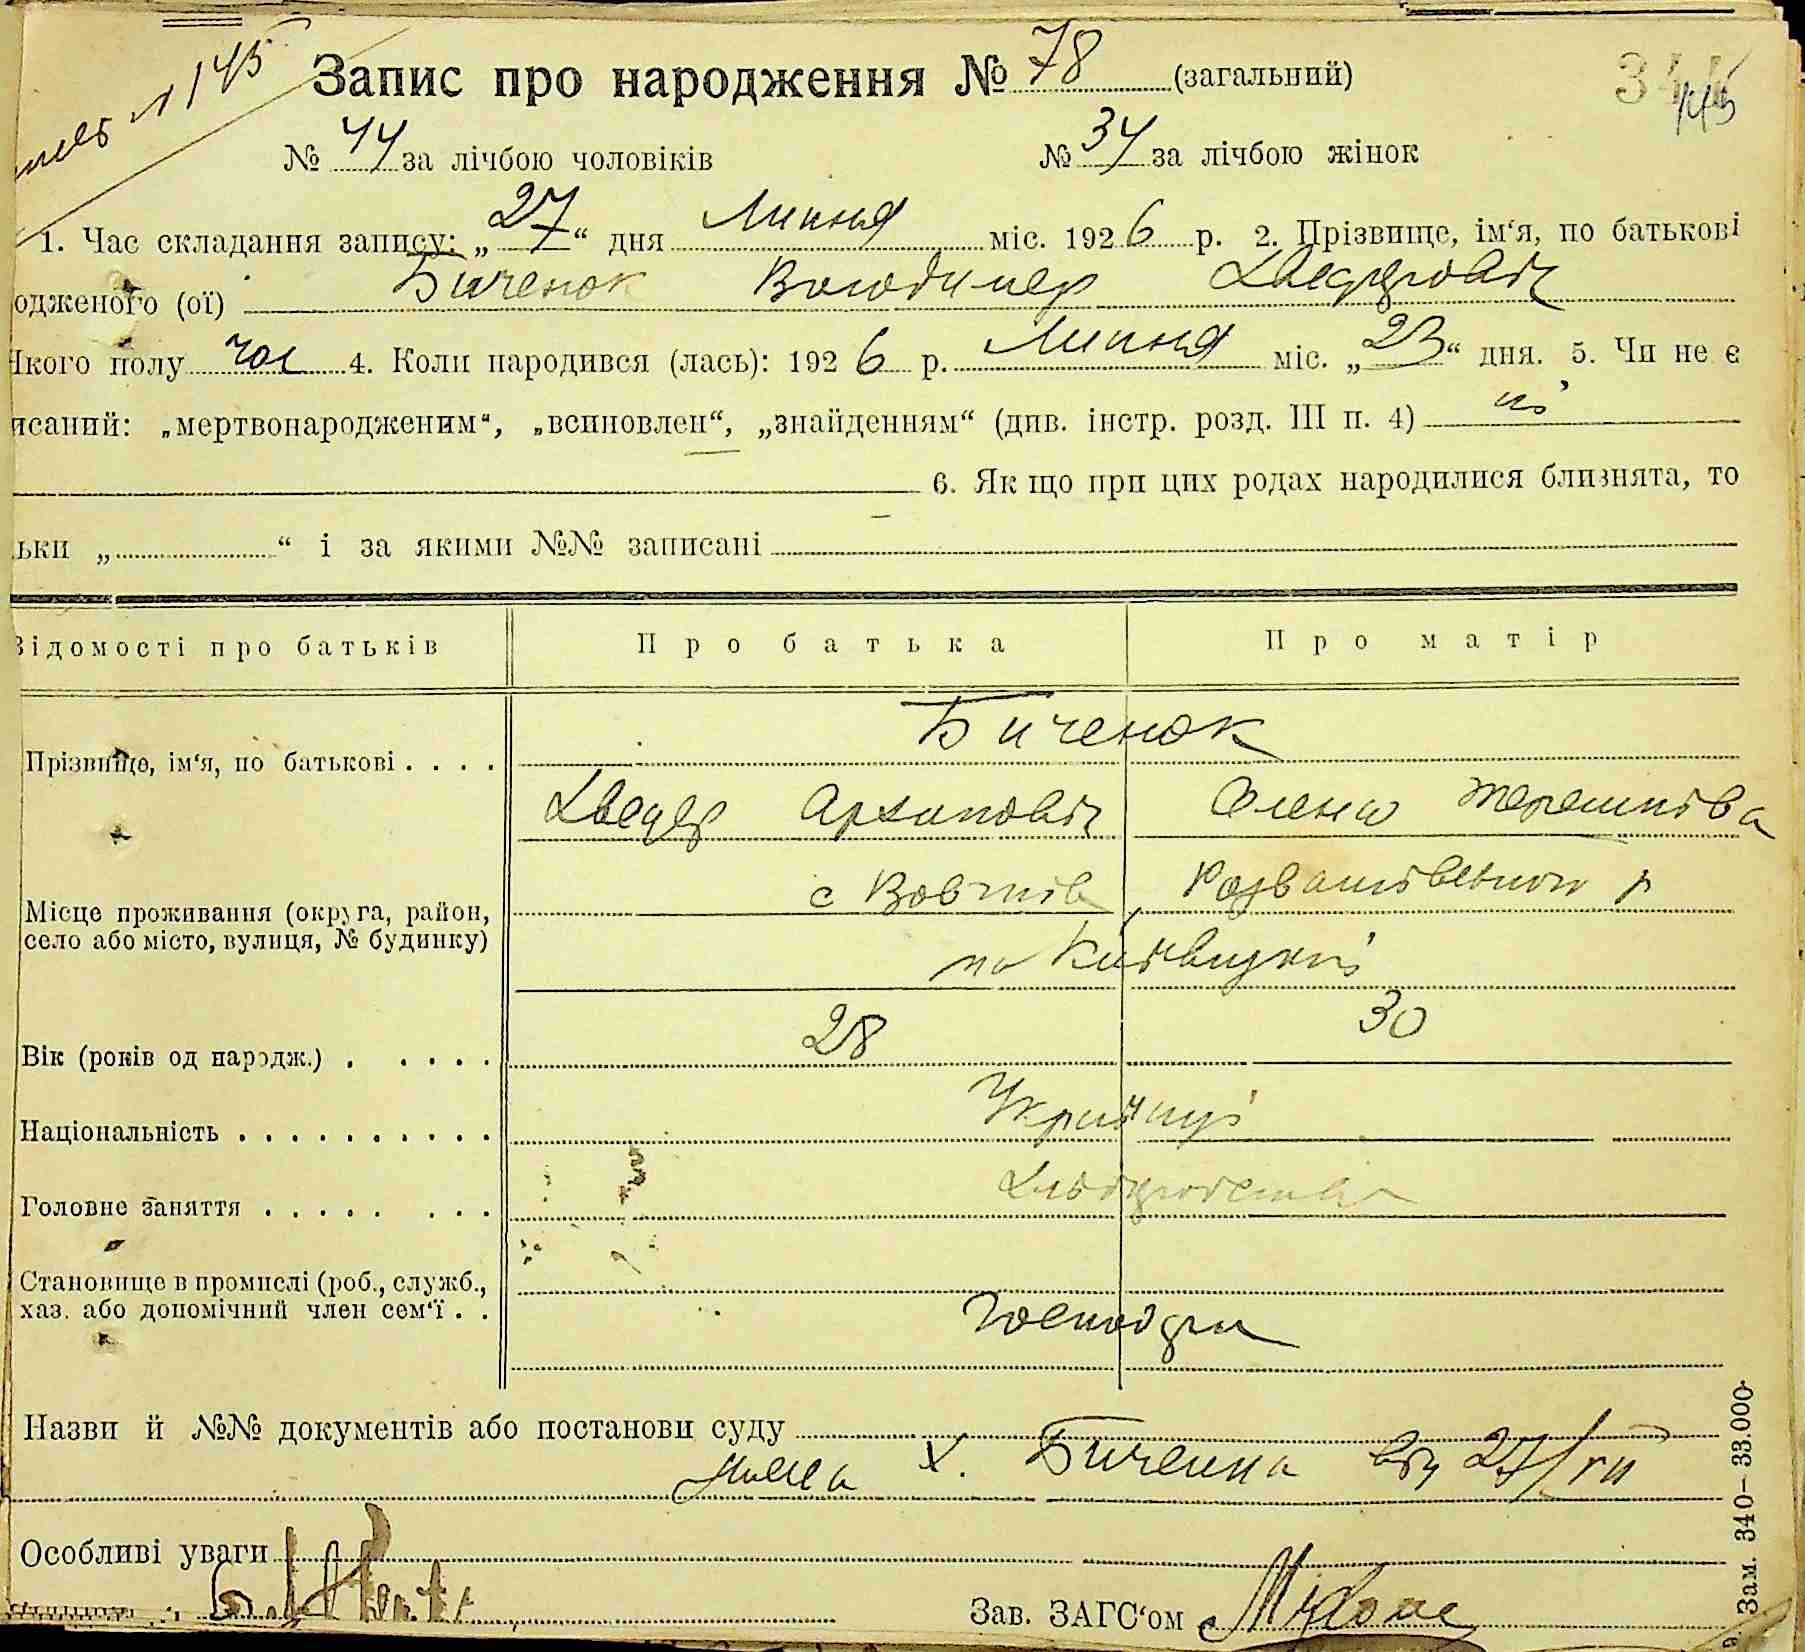 № 145
Запис про народження № 78 (загальний)
145
№ 44 за лічбою чоловіків № 34 за лічбою жінок
1. Час складання запису: „27“ дня Липня міс. 1926 р. 2. Прізвище, ім‘я, по батькові
одженого (ої) Биченок Володимер Хведорович
Якого полу чол 4. Коли народився (лась): 1926 р. Липня міс. „23“ дня. 5. Чи не є
исаний: „мертвонародженим“, „всиновлен“, „знайденням“ (див. інстр. розд. III п. 4) ні
6. Як що при цих родах народилися близнята, то
льки „ “ і за якими №№ записані
Відомості про батьків Про батька Про матір
Биченок
Прізвище, ім‘я, по батькові . . . .
Хведер Архипович Олена Терешківа
с Вовчків Розважівського р
Місце проживання (округа, район,
село або місто, вулиця, № будинку)
на Київщині
28 30
Вік (років од народж.) . . . . .
Українці
Національність . . . . . . . . . .
Хліборобство
Головне заняття . . . . . . . .
Становище в промислі (роб., служб.,
хаз. або допомічний член сем‘ї . .
Господар
Назви й №№ документів або постанови суду
Х. Биченка від 27/VII
Особливі уваги
Зав. ЗАГС‘ом
Зам. 340—33.000